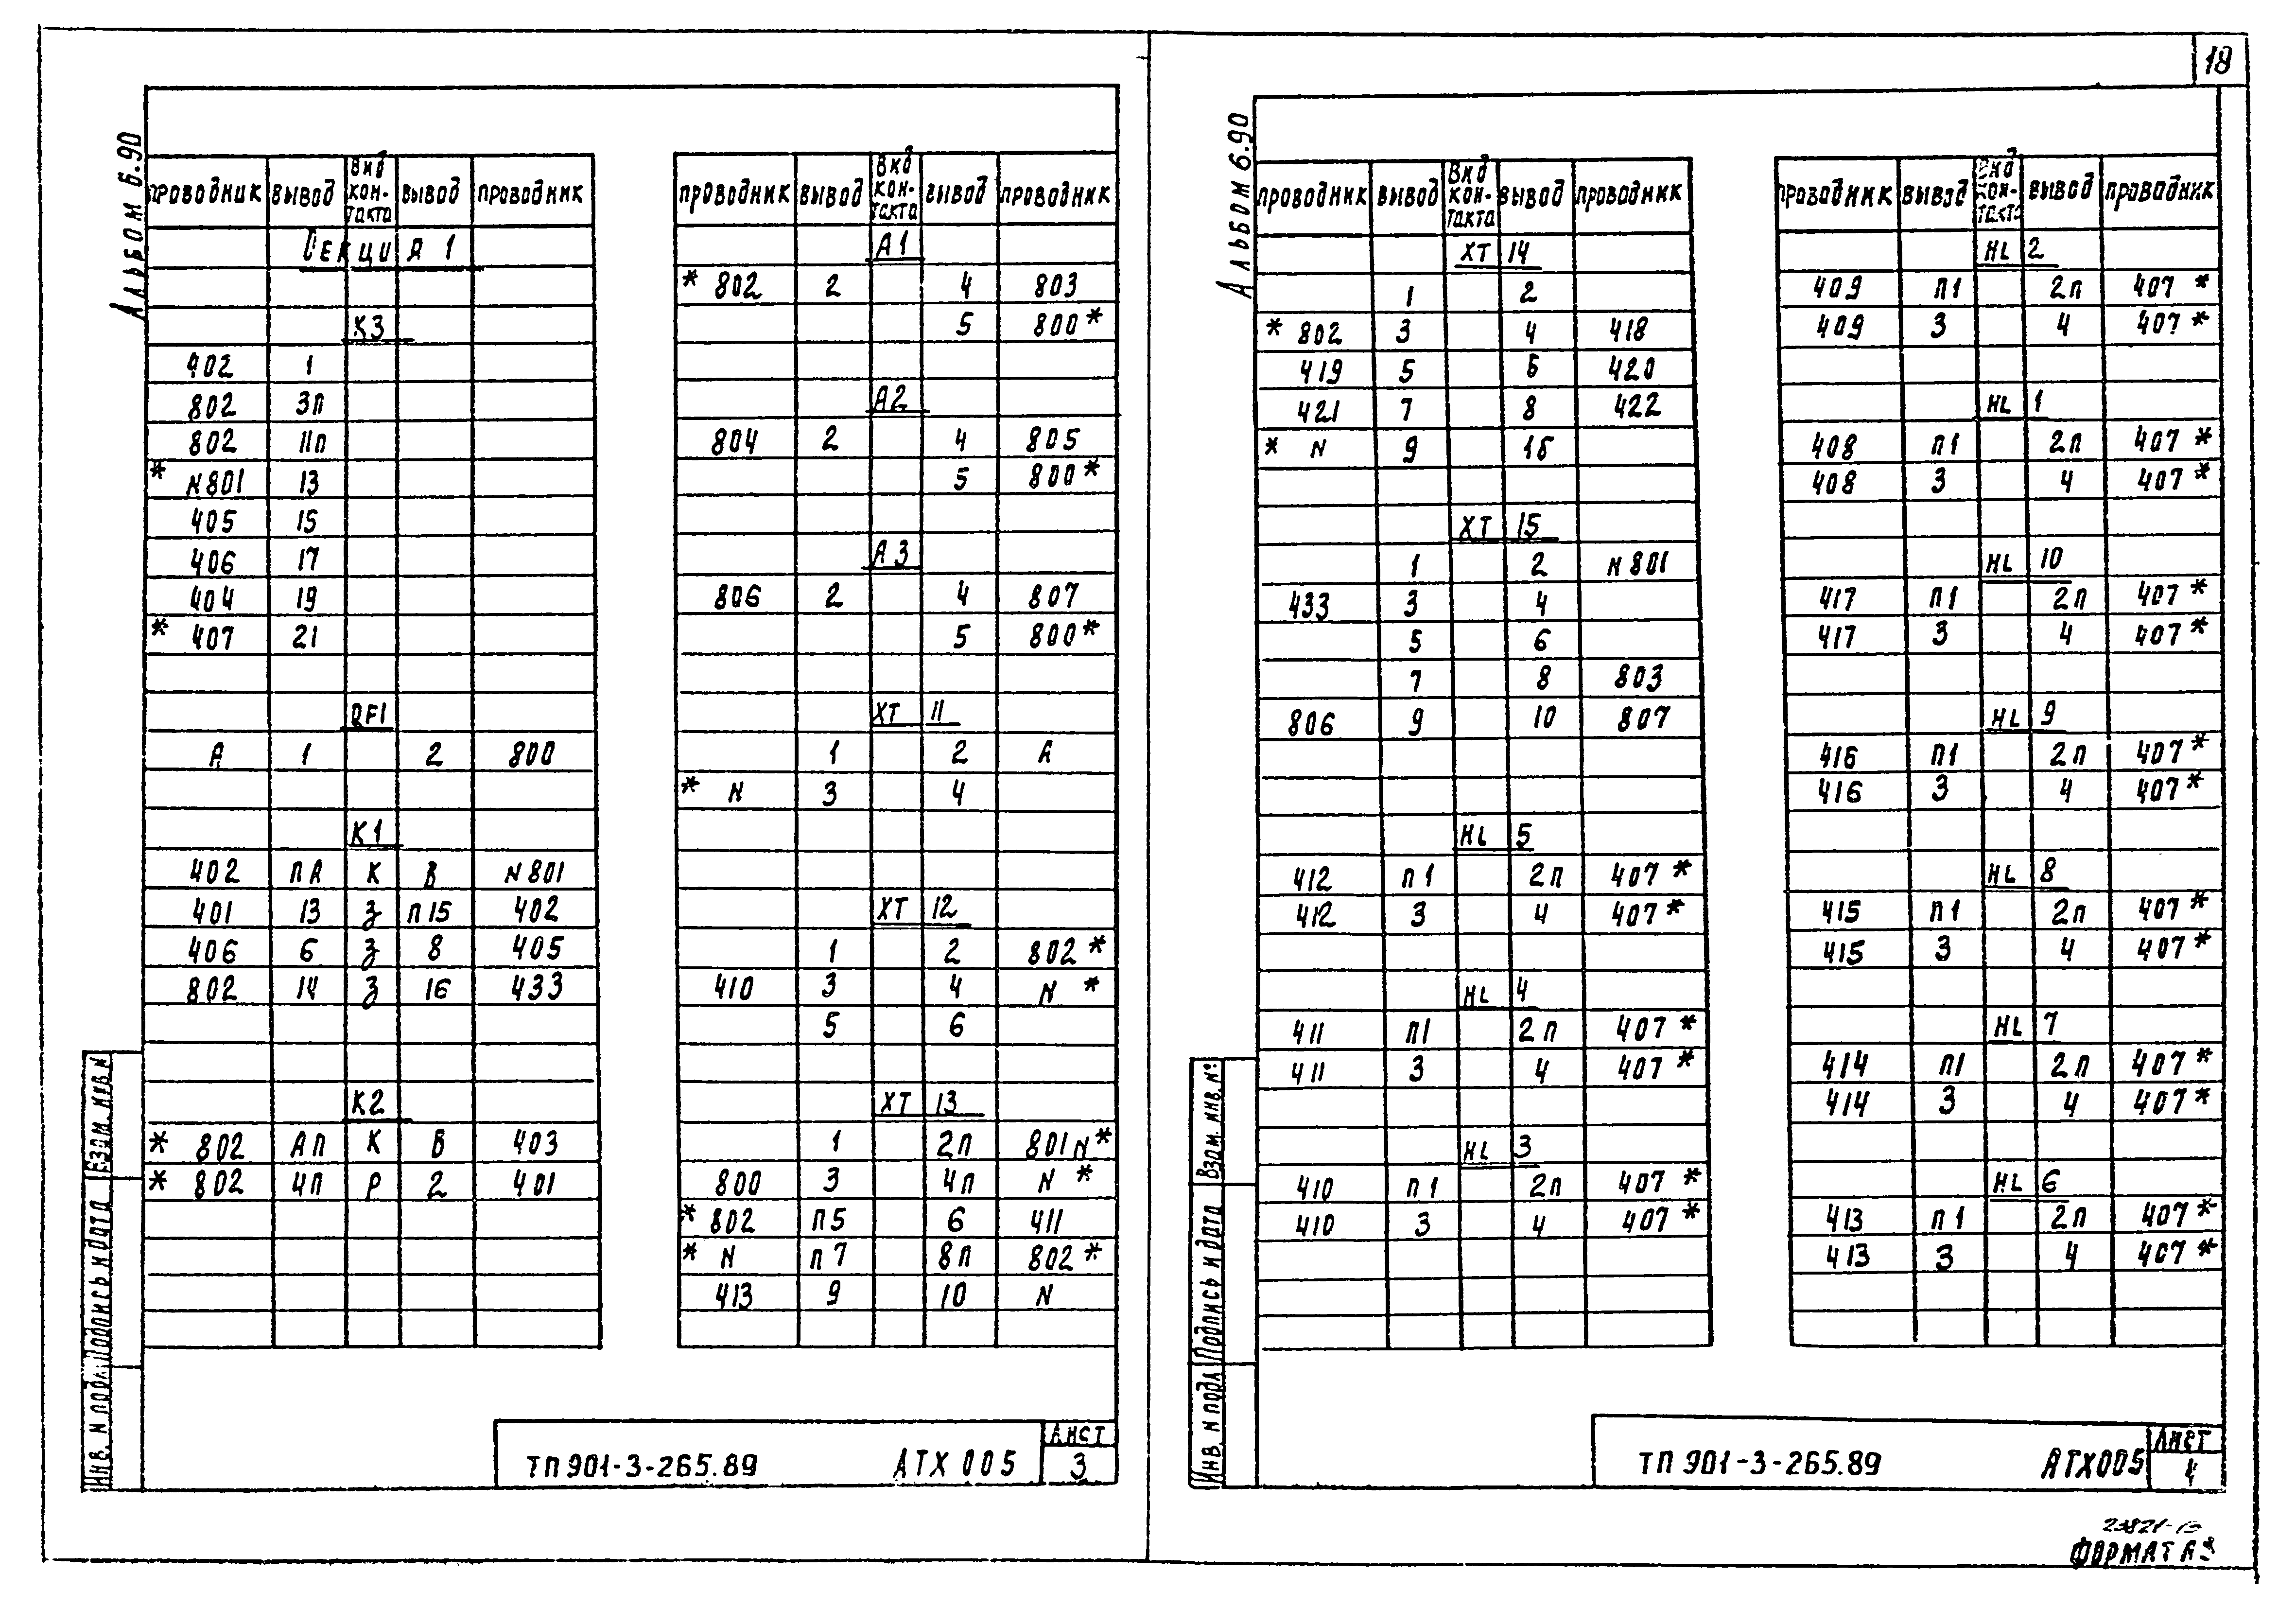 18
Альбом 6.90
проводник вывод Вид кон-такта вывод проводник
Секция 1
К3
402 1
802 3п
802 11п
* N801 13
405 15
406 17
404 19
* 407 21
QF1
А 1 2 800
К1
402 пА К В N801
401 13 З п15 402
406 6 З 8 405
802 14 З 16 433
К2
* 802 Ап К В 403
* 802 4п Р 2 401
проводник вывод Вид кон-такта вывод проводник
А1
* 802 2 4 803
5 800*
А2
804 2 4 805
5 800*
А3
806 2 4 807
5 800*
ХТ 11
1 2 А
* N 3 4
ХТ 12
1 2 802*
410 3 4 N *
5 6
ХТ 13
1 2п 801N*
800 3 4п N *
* 802 п5 6 411
* N п7 8п 802*
413 9 10 N
Инв. N подл. Подпись и дата Взам. инв. N
ТП 901-3-265.89 АТХ 005 Лист 3
Альбом 6.90
проводник вывод Вид кон-такта вывод проводник
ХТ 14
1 2
* 802 3 4 418
419 5 6 420
421 7 8 422
* N 9 16
ХТ 15
1 2 N801
433 3 4
5 6
7 8 803
806 9 10 807
HL 5
412 п1 2п 407*
412 3 4 407*
HL 4
411 п1 2п 407*
411 3 4 407*
HL 3
410 п1 2п 407*
410 3 4 407*
проводник вывод Вид кон-такта вывод проводник
HL 2
409 п1 2п 407*
409 3 4 407*
HL 1
408 п1 2п 407*
408 3 4 407*
HL 10
417 п1 2п 407*
417 3 4 407*
HL 9
416 п1 2п 407*
416 3 4 407*
HL 8
415 п1 2п 407*
415 3 4 407*
HL 7
414 п1 2п 407*
414 3 4 407*
HL 6
413 п1 2п 407*
413 3 4 407*
Инв. N подл Подпись и дата Взам. инв. №
ТП 901-3-265.89 АТХ005 Лист 4
23821-13
ФОРМАТ А3